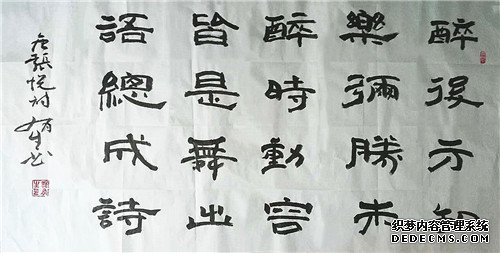 醉後方知
樂彌勝未
醉時動容
皆是舞出
語總成詩
唐張悦詩
织梦内容管理系统
DEDECMS.COM